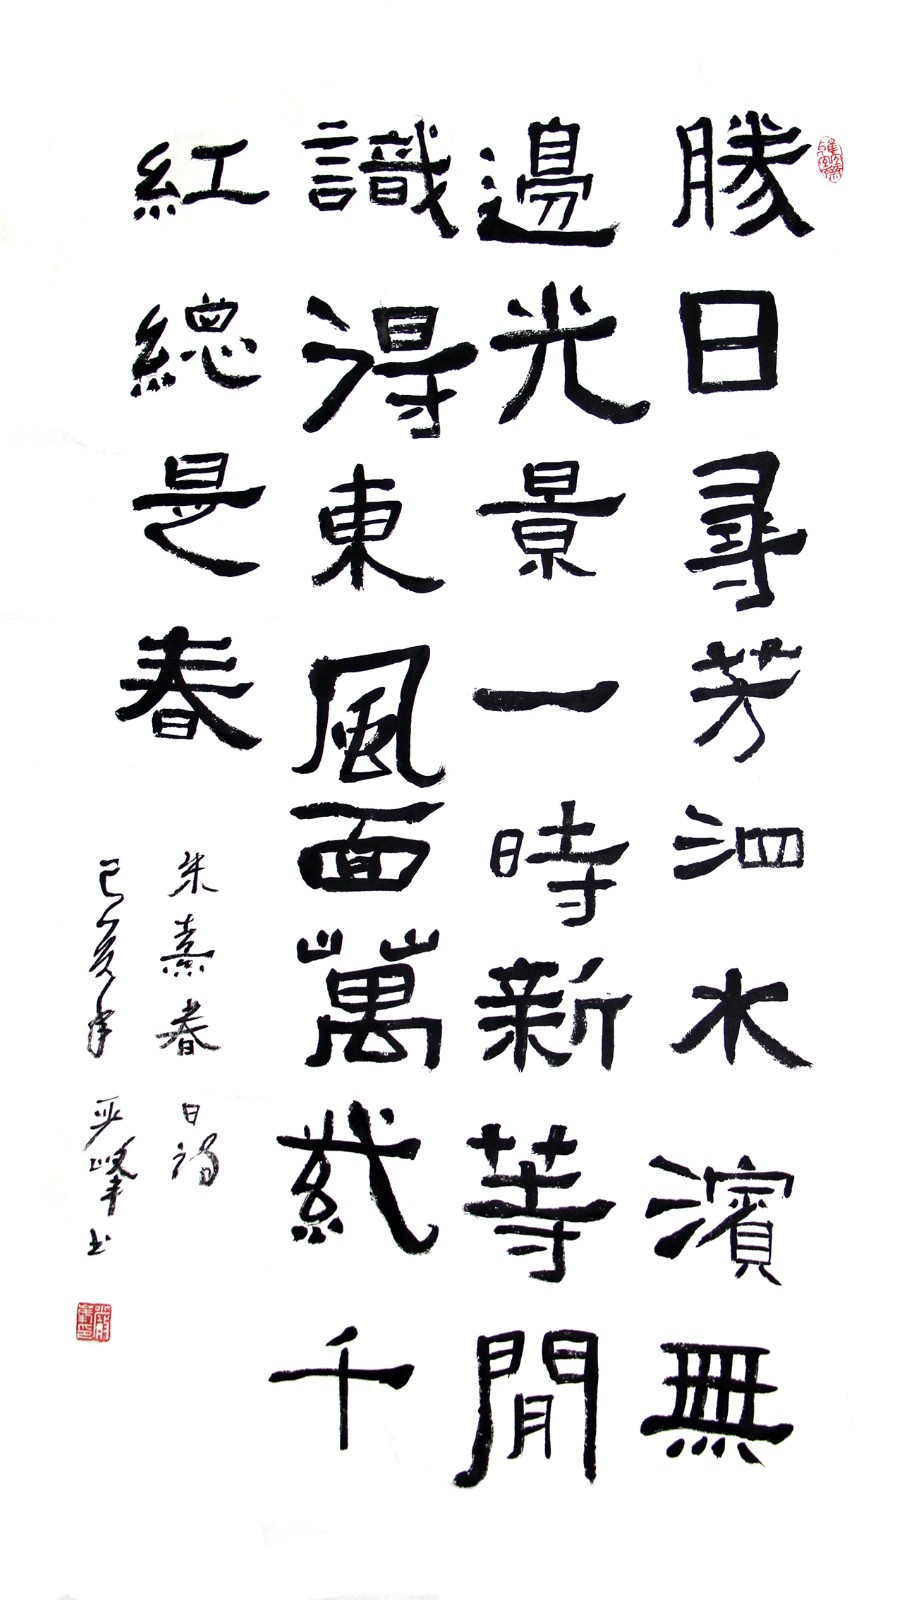 勝日尋芳泗水濱無
邊光景一時新等閒
識得東風面萬紫千
紅總是春
朱熹春日詩
己亥年 严峰书